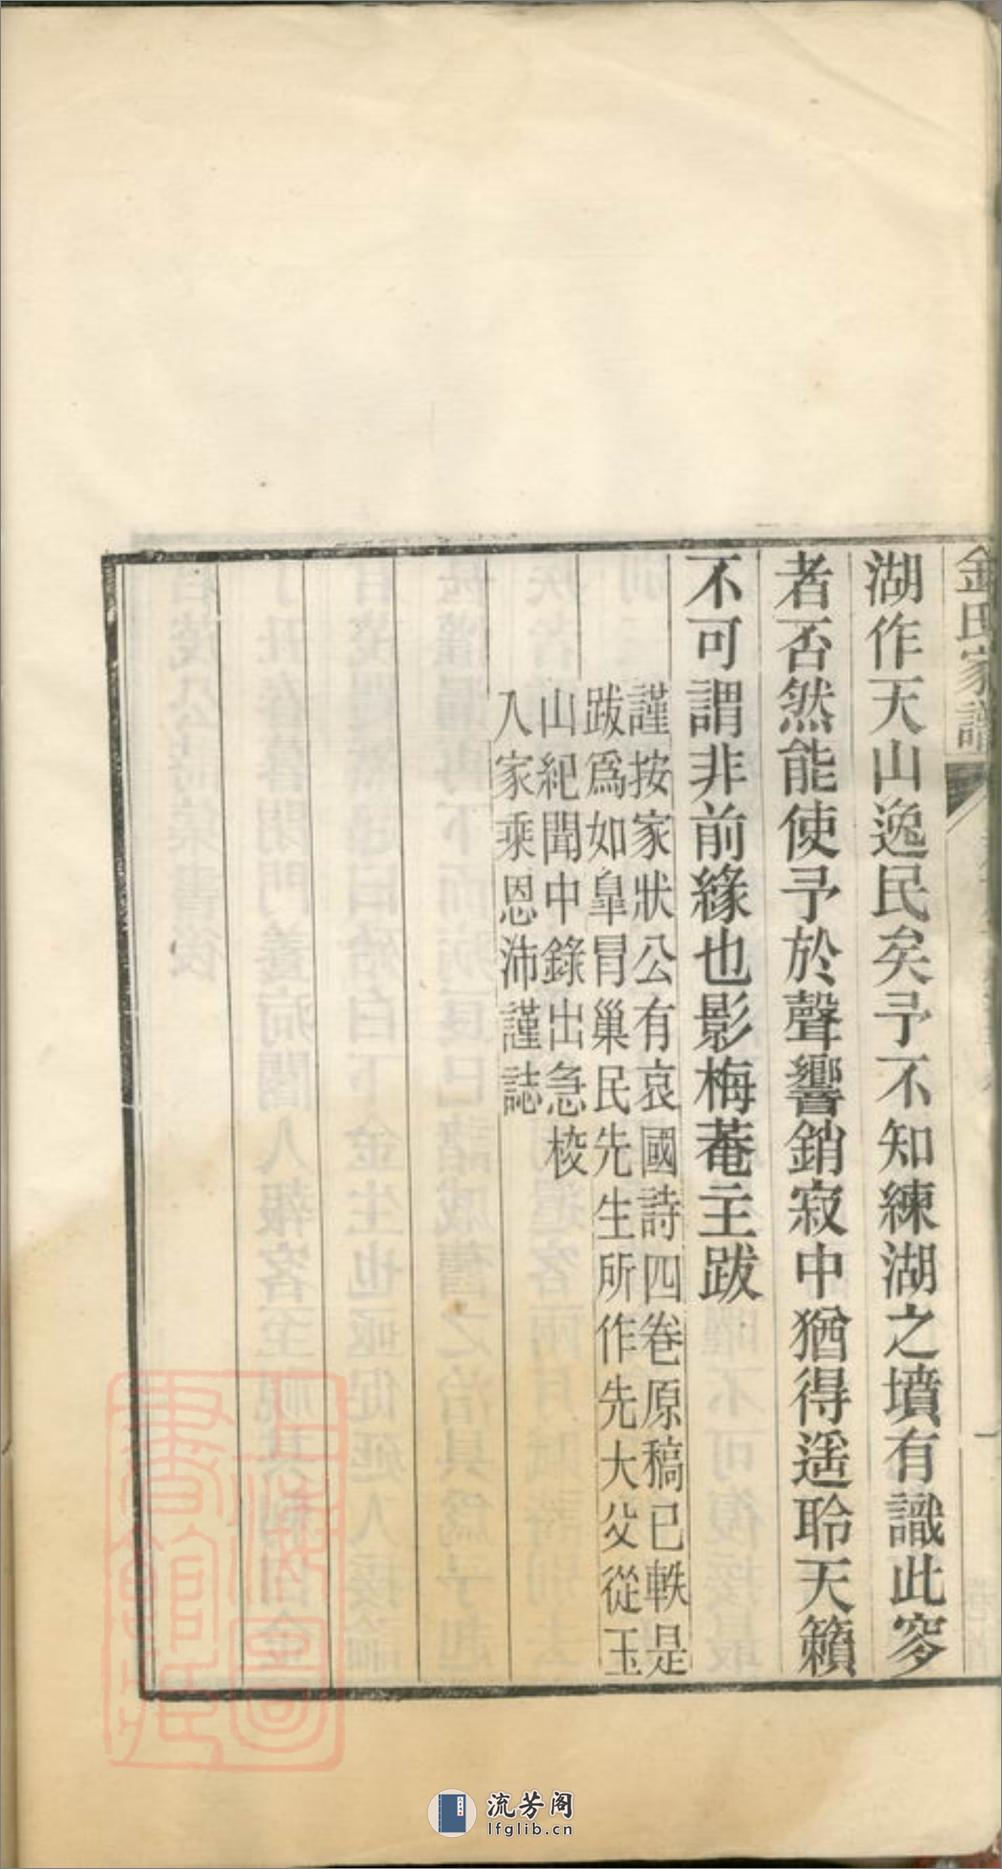 金氏家譜
湖作天山逸民矣予不知練湖之墳有識此穸
者否然能使予於聲響銷寂中猶得遥聆天籟
不可謂非前緣也影梅菴主跋
謹按家狀公有哀國詩四卷原稿已軼是
跋爲如臯冐巢民先生所作先大父從玉
山紀聞中錄出急梭
入家乘恩沛謹誌
流芳阁
lfglib.cn